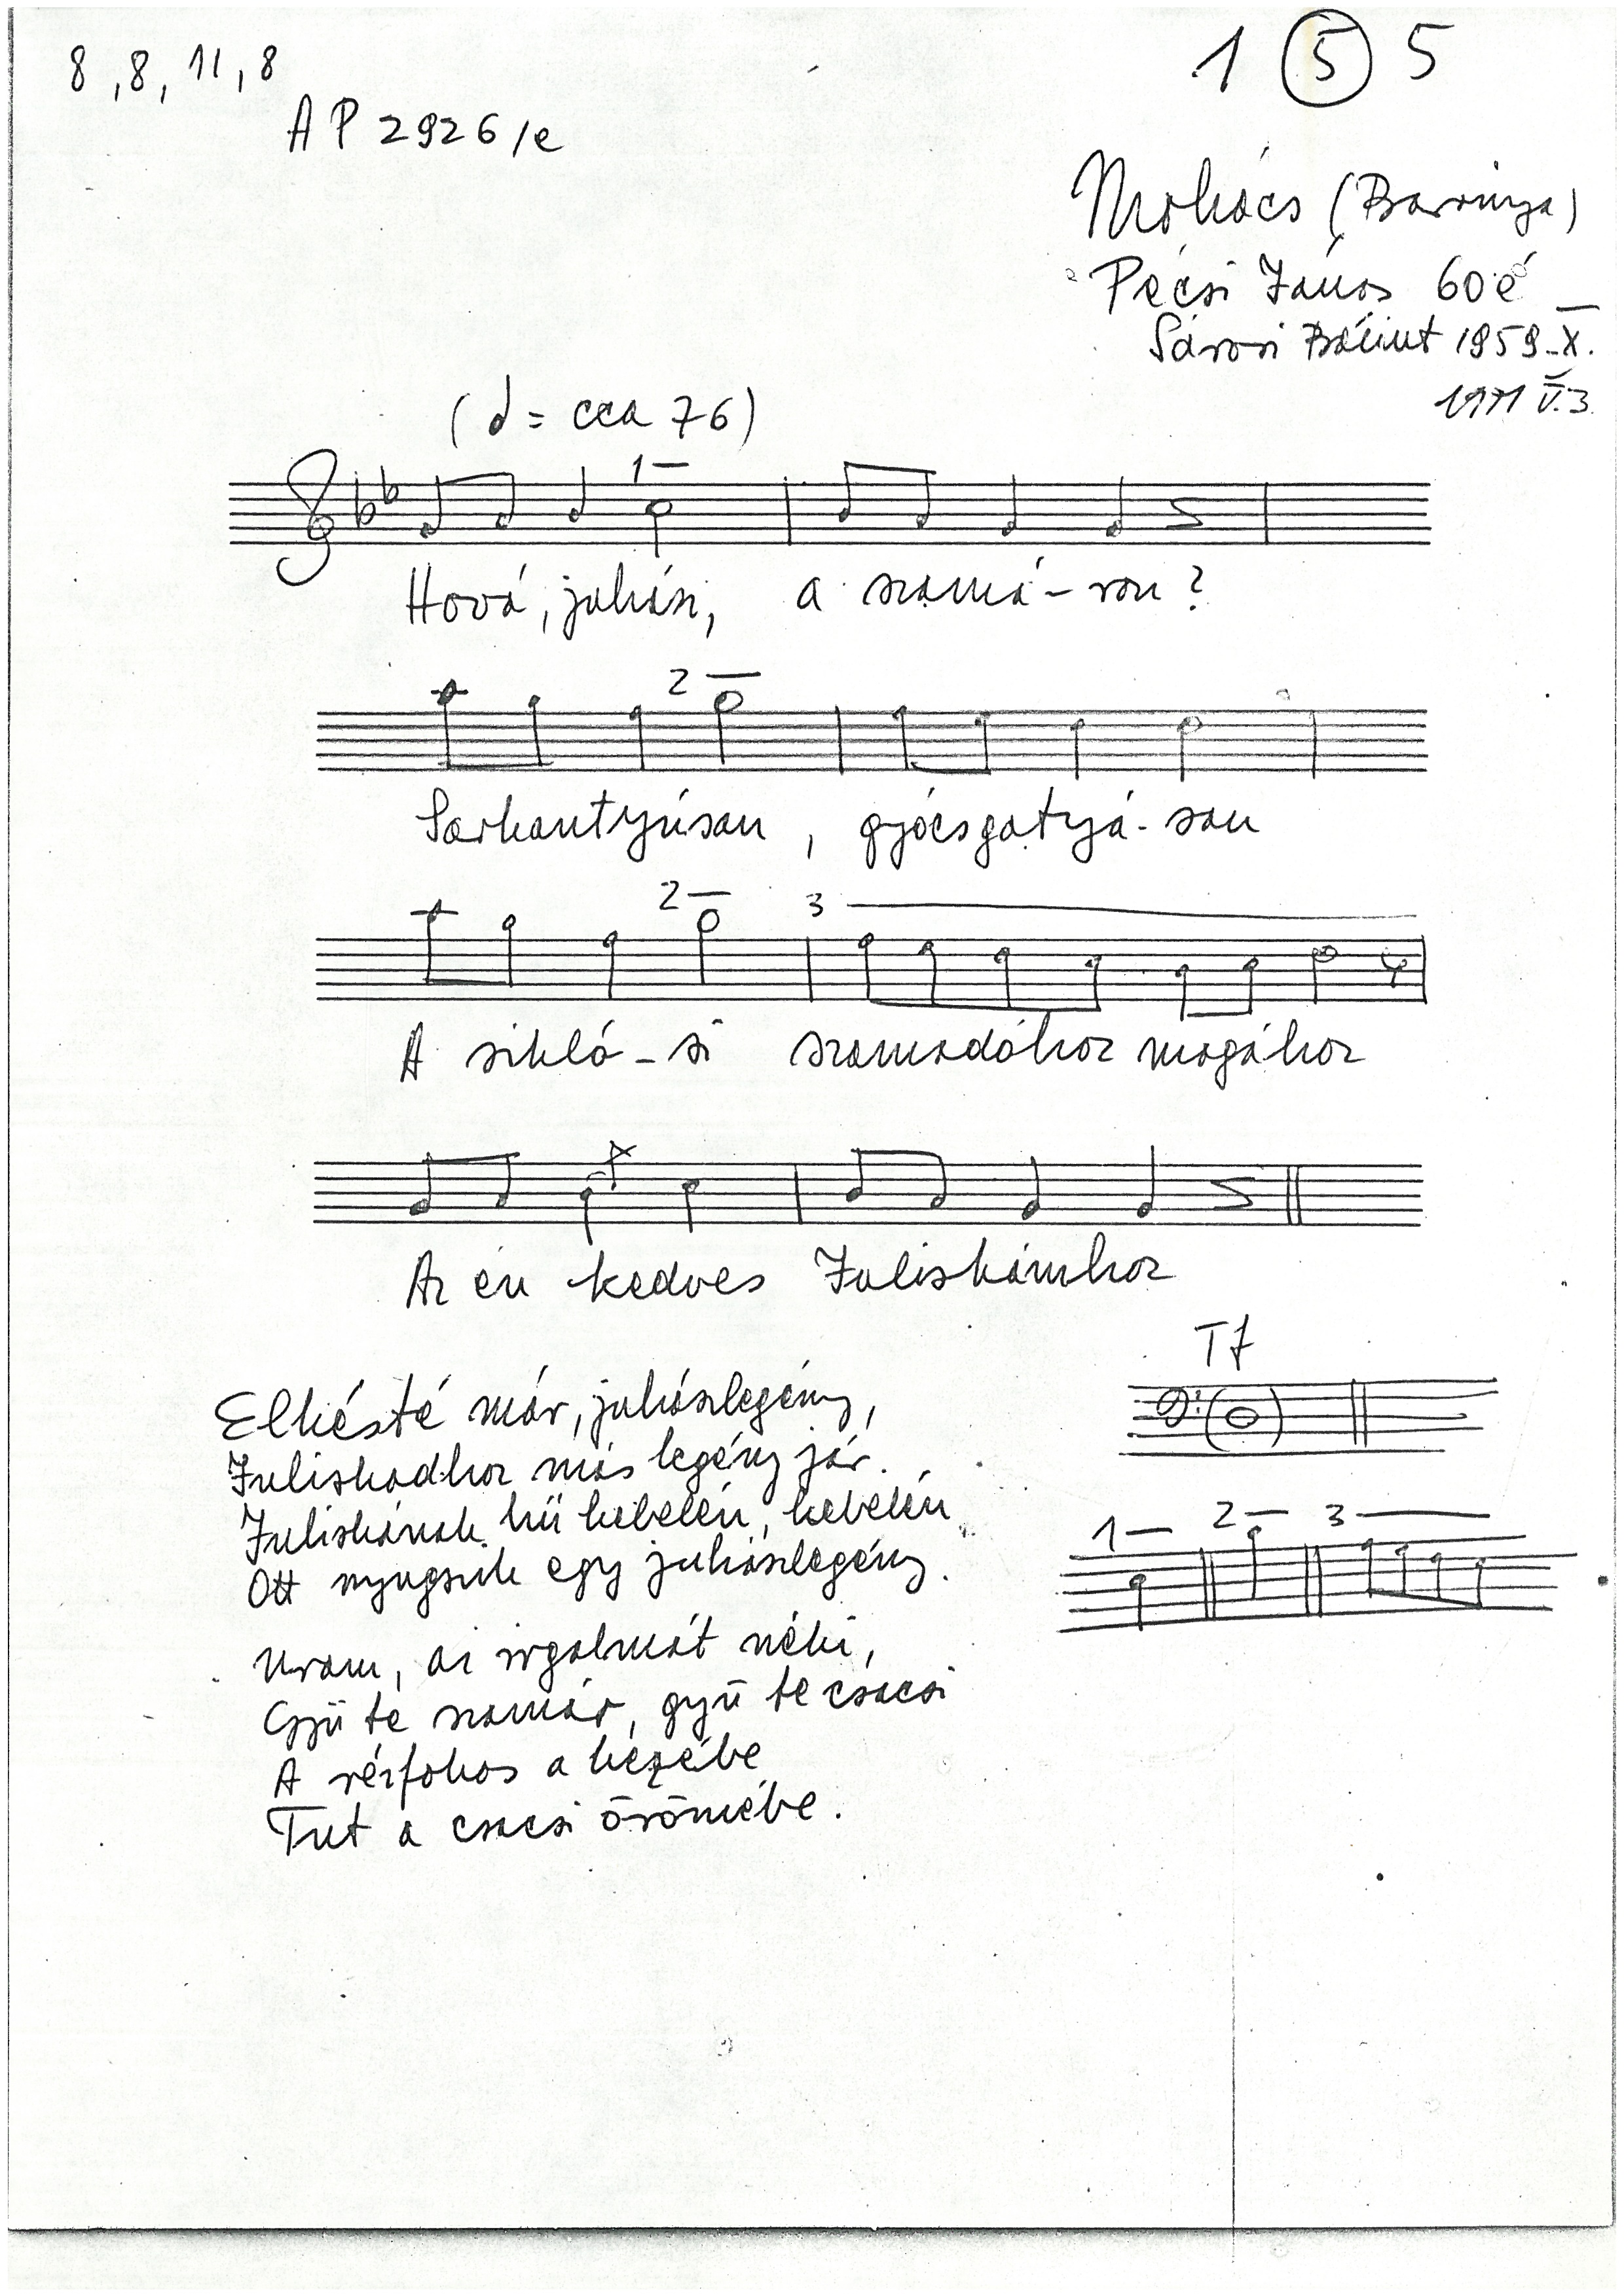 8, 8, 11, 8
1 5 5
AP 2926/e
Mohács (Baranya)
Pécsi János 60 é
Sárosi Bálint 1959. X.
1971 V. 3.
(𝅗𝅥 = cca 76)
1
Hová, juhász, a szamá-ron?
2
Sarkantyúsan, gyócsgatyá-san
2 3
A sikló-si szamadóhoz magához
Az én kedves Juliskámhoz
Elkésté már, juhászlegény,
Juliskádhoz más legény jár.
Juliskának hű kebelén, kebelén
Ott nyugszik egy juhászlegény.
Uram, irgalmát néki,
Gyű te szamár, gyű te csacsi
A rézfokos a kézébe
Tut a csacsi örömébe.
Tf
1 2 3